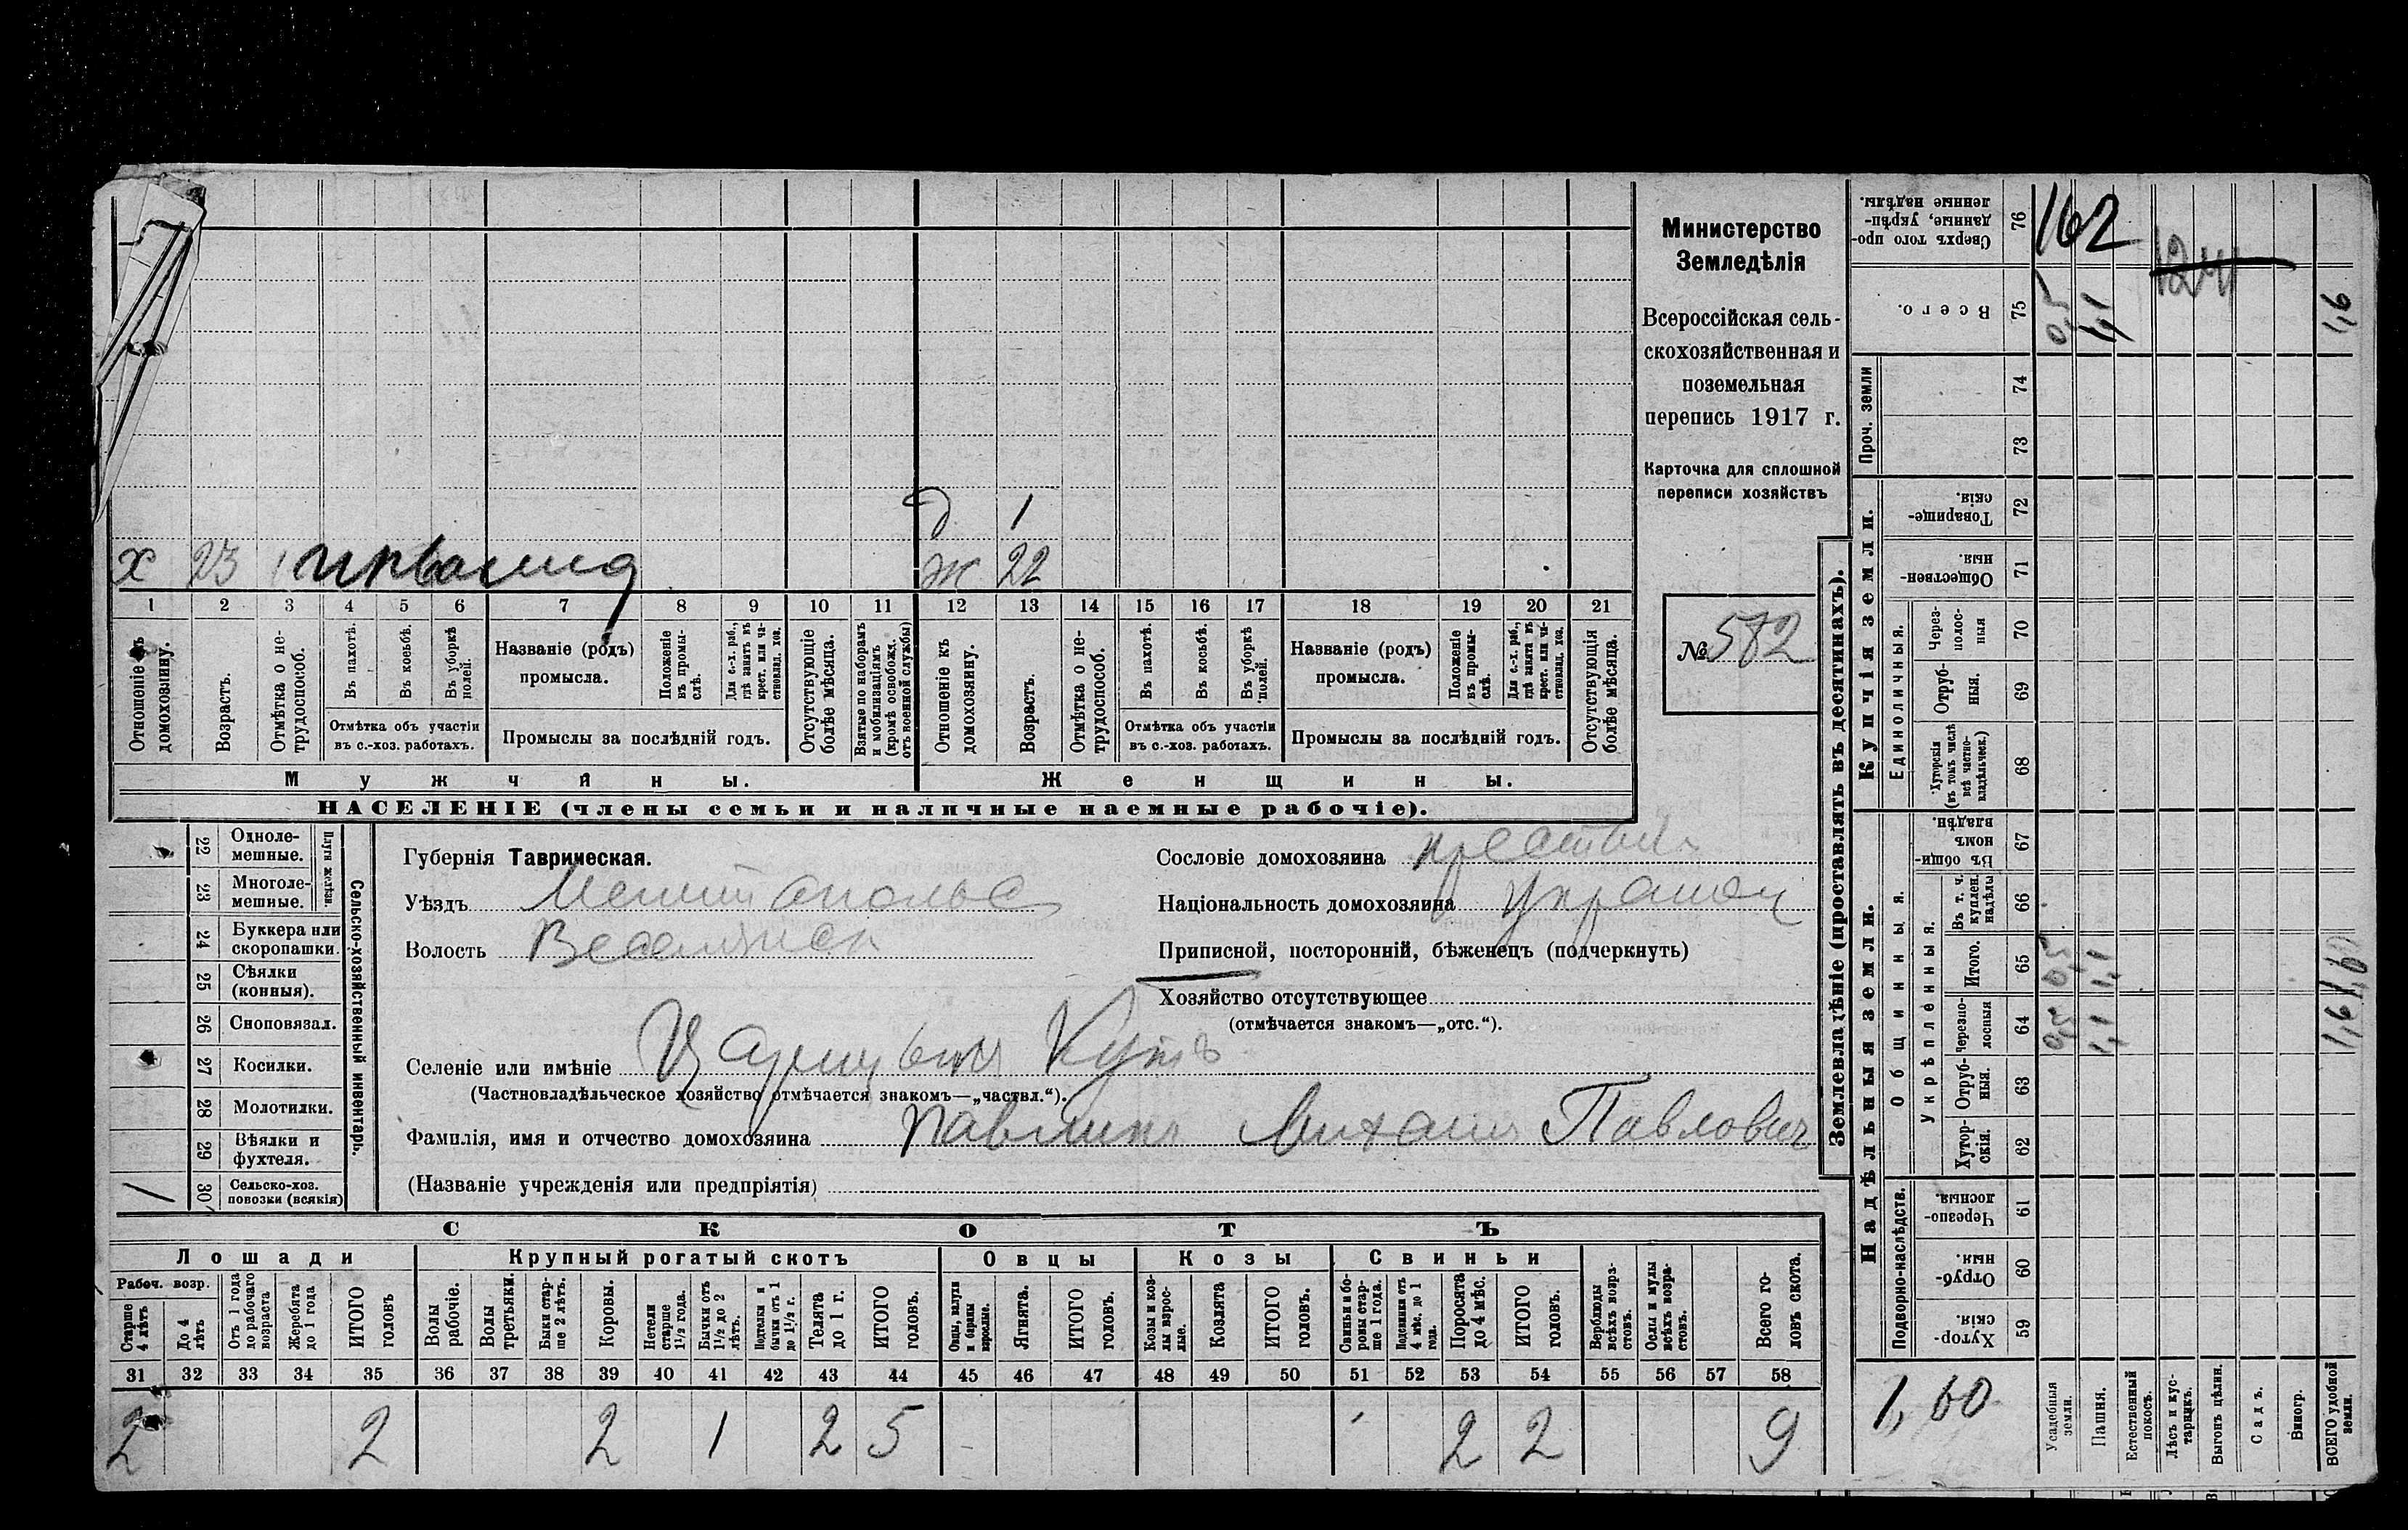 Министерство
Земледѣлія
Всероссійская сель-
скохозяйственная и
поземельная
перепись 1917 г.
Карточка для сплошной
переписи хозяйствъ
№ 582
д 1
х 23
ж 22
1 2 3 4 5 6 7 8 9 10 11 12 13 14 15 16 17 18 19 20 21
Отношеніе къ домохозяину.
Возрастъ.
Отмѣтка о не-трудоспособ.
Въ пахотѣ.
Въ косьбѣ.
Въ уборкѣ полей.
Отмѣтка объ участіи въ с.-хоз. работахъ.
Названіе (родъ) промысла.
Положеніе въ промы-слѣ.
Для с.-х. раб., гдѣ занятъ въ крест. или ча-стновлад. хоз.
Промыслы за послѣдній годъ.
Отсутствующіе болѣе мѣсяца.
Взятые по наборамъ и мобилизаціямъ (кромѣ освобожд. отъ военной службы)
Отношеніе къ домохозяину.
Возрастъ.
Отмѣтка о не-трудоспособ.
Въ пахотѣ.
Въ косьбѣ.
Въ уборкѣ полей.
Отмѣтка объ участіи въ с.-хоз. работахъ.
Названіе (родъ) промысла.
Положеніе въ промы-слѣ.
Для с.-х. раб., гдѣ занята въ крест. или ча-стновлад. хоз.
Промыслы за послѣдній годъ.
Отсутствующія болѣе мѣсяца.
Мужчины.
Женщины.
НАСЕЛЕНІЕ (члены семьи и наличные наемные рабочіе).
Сельско-хозяйственный инвентарь.
Плуги желѣзн.
22 Одноле-мешные.
23 Многоле-мешные.
24 Буккера или скоропашки.
25 Сѣялки (конныя).
26 Сноповязал.
27 Косилки.
28 Молотилки.
29 Вѣялки и фухтеля.
30 Сельско-хоз. повозки (всякія) 1
Губернія Таврическая.
Уѣздъ Мелитопольс
Волость Веселянск
Сословіе домохозяина крестьян
Національность домохозяина украинец
Приписной, посторонній, бѣженецъ (подчеркнуть)
Хозяйство отсутствующее
(отмѣчается знакомъ—„отс.“).
Селеніе или имѣніе Царицынъ Кутъ
(Частновладѣльческое хозяйство отмѣчается знакомъ—„частвл.“).
Фамилія, имя и отчество домохозяина Павликъ Михаилъ Павловичъ
(Названіе учрежденія или предпріятія)
СКОТЪ
Лошади
Крупный рогатый скотъ
Овцы
Козы
Свиньи
Рабоч. возр.
Старше 4 лѣтъ
До 4 лѣтъ
Отъ 1 года до рабочаго возраста
Жеребята до 1 года
ИТОГО головъ
Волы рабочіе.
Волы третьяки.
Быки стар-ше 2 лѣтъ.
Коровы.
Нетели старше 1½ года.
Бычки отъ 1½ до 2 лѣтъ.
Подтелки и бычки отъ 1 до 1½ г.
Телята до 1 г.
ИТОГО головъ.
Овцы, валухи и бараны взрослые.
Ягнята.
ИТОГО головъ.
Козы и коз-лы взрос-лые.
Козлята
ИТОГО головъ.
Свиньи и бо-ровы стар-ше 1 года.
Подсвинки отъ 4 мѣс. до 1 года.
Поросята до 4 мѣс.
ИТОГО головъ.
Верблюды всѣхъ возра-стовъ.
Ослы и мулы всѣхъ возра-стовъ.
Всего го-ловъ скота.
31 32 33 34 35 36 37 38 39 40 41 42 43 44 45 46 47 48 49 50 51 52 53 54 55 56 57 58
2 2 2 1 2 5 2 2 9
Землевладѣніе (проставлять въ десятинахъ).
Купчія земли.
Надѣльныя земли.
Проч. земли
Сверхъ того про-данные, укрѣп-ленные надѣлы. 76 162
124
Всего. 75 0,5 1,1 1,6
74
73
Товарище-скія. 72
Обществен-ныя. 71
Единоличныя.
Через-полос-ныя 70
Отруб-ныя. 69
Хуторскія (въ томъ числѣ всѣ частно-владѣльческ.) 68
Общинныя.
Въ общи-номъ владѣн. 67
Укрѣпленныя.
Въ т. ч. куплен. надѣлы 66
Итого. 65 0,5 1,1 1,60
Черезпо-лосныя 64 0,5 1,1 1,6
Отруб-ныя. 63
Хутор-скія. 62
Подворно-наслѣдств.
Черезпо-лосныя. 61
Отруб-ныя. 60
Хутор-скія. 59
1,60
Усадебныя земли.
Пашня.
Естественный покосъ.
Лѣсъ и кус-тарникъ.
Выгонъ цѣлин.
Садъ.
Виногр.
ВСЕГО удобной земли.